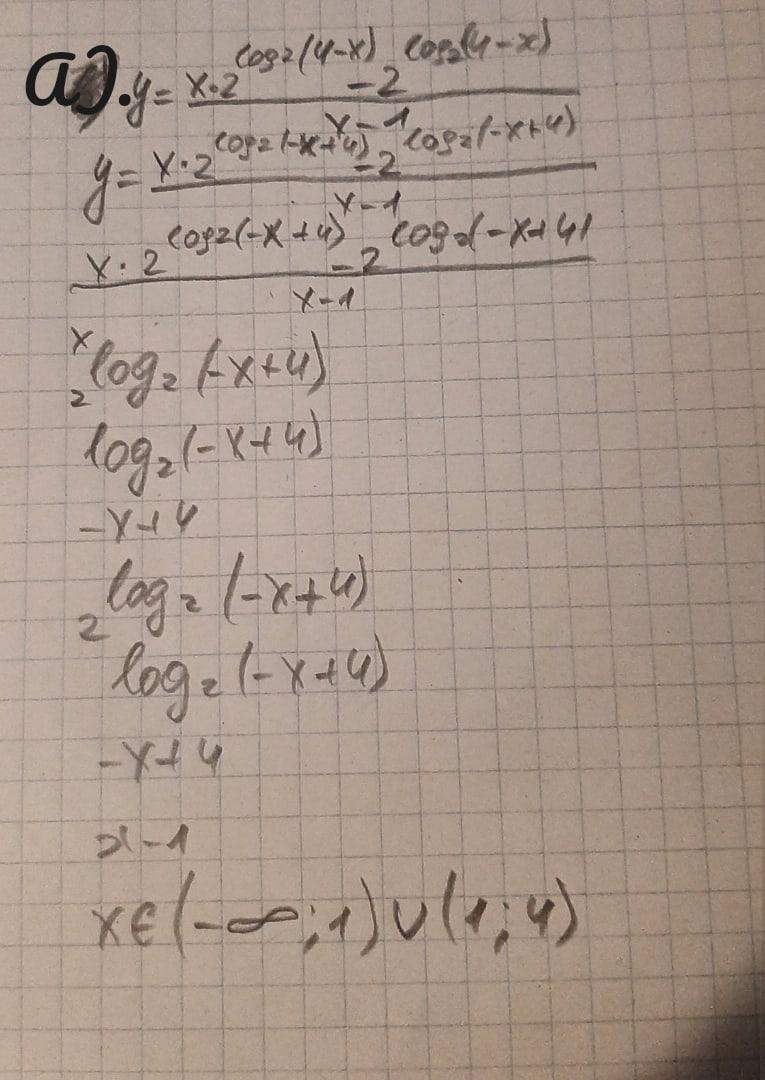 а). y = x·2^log2(4-x) - 2^log2(4-x) / x-1
y = x·2^log2(-x+4) - 2^log2(-x+4) / x-1
x·2^log2(-x+4) - 2^log2(-x+4) / x-1
x 2 log2 (-x+4)
log2 (-x+4)
-x+4
2 log2 (-x+4)
log2 (-x+4)
-x+4
x-1
x∈(-∞;1)∪(1;4)